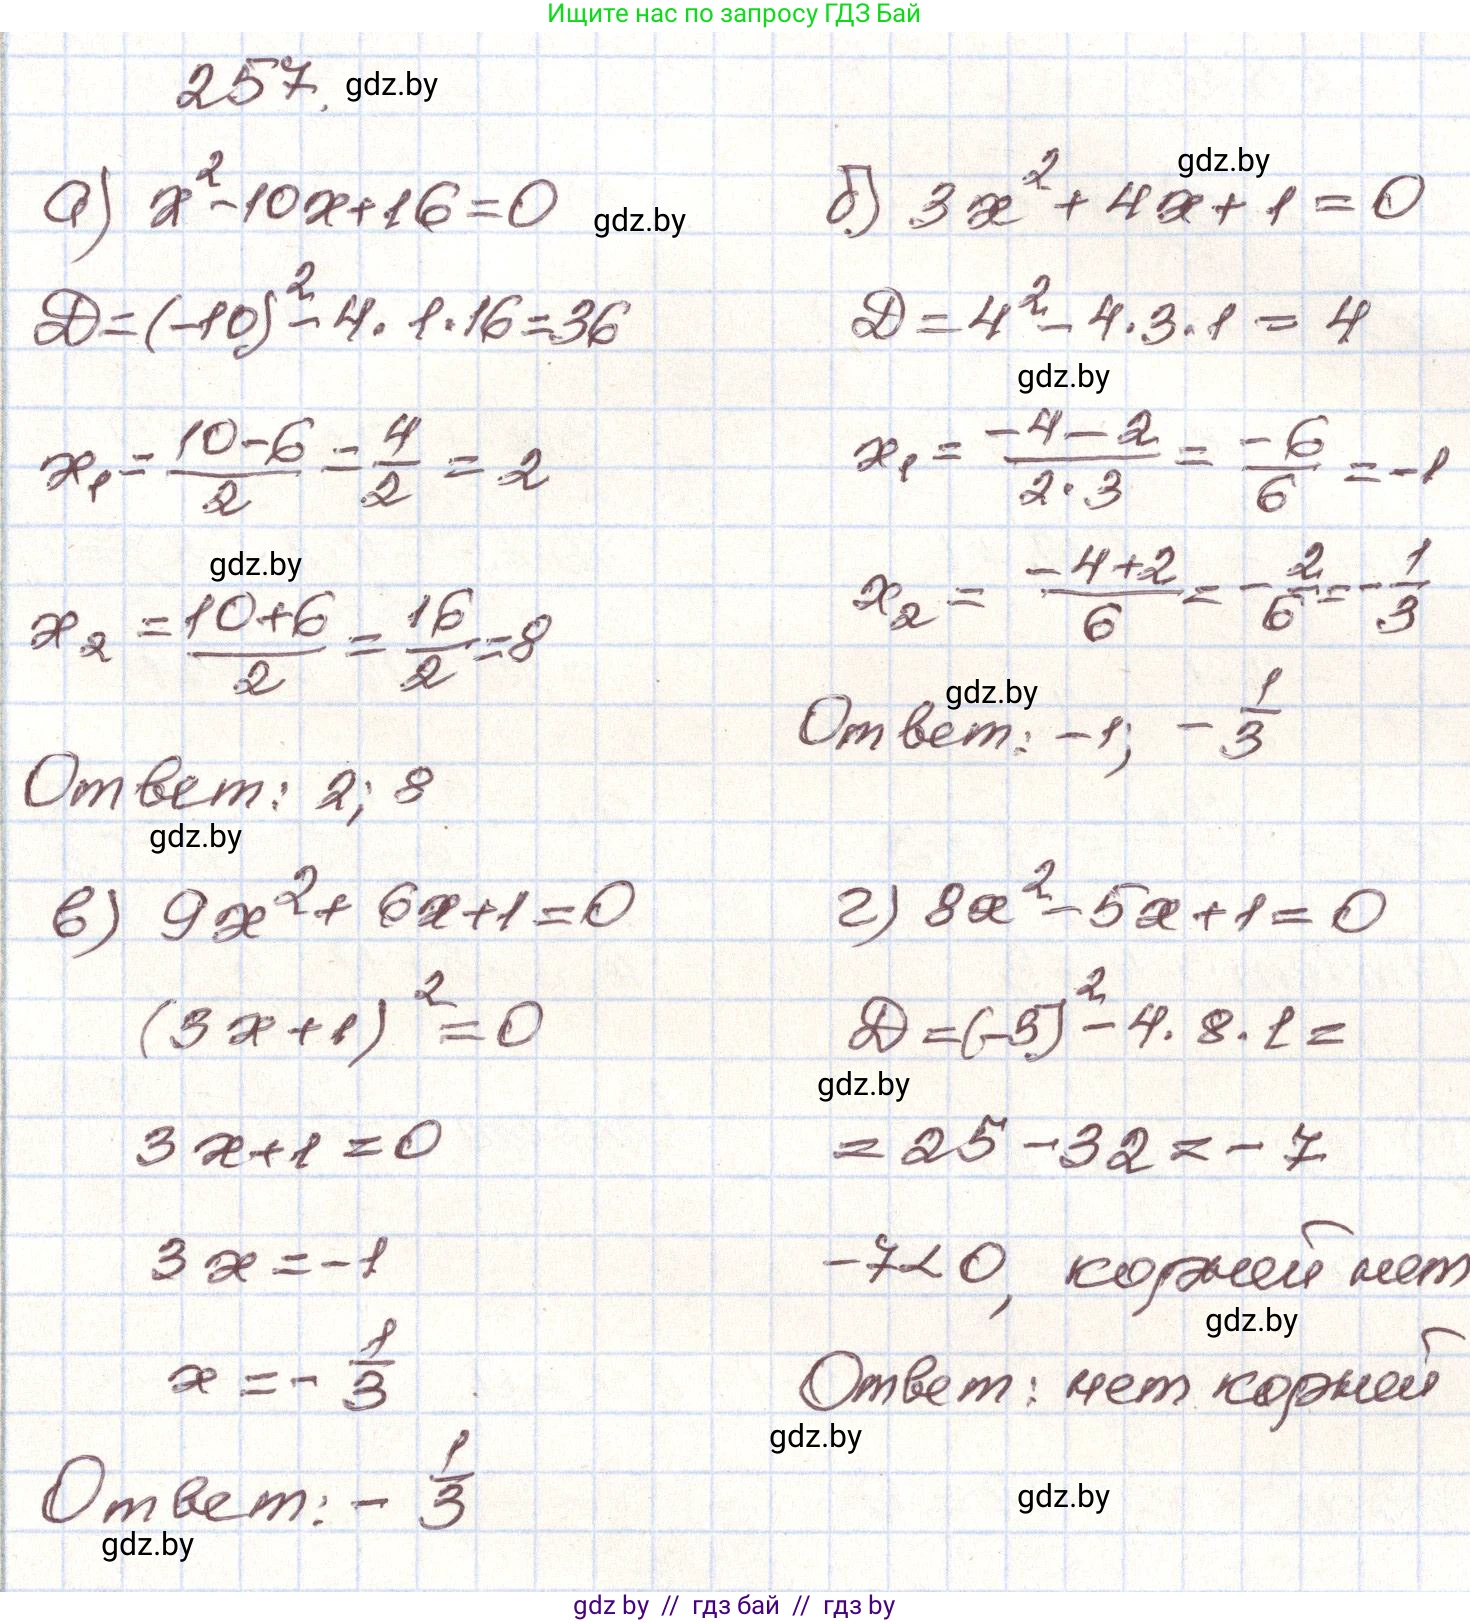 Ищите нас по запросу ГДЗ Бай
257. gdz.by
а) x² - 10x + 16 = 0 gdz.by
Д = (-10)² - 4 · 1 · 16 = 36
x₁ = (10 - 6)/2 = 4/2 = 2
gdz.by
x₂ = (10 + 6)/2 = 16/2 = 8
Ответ: 2; 8
gdz.by
gdz.by
б) 3x² + 4x + 1 = 0
Д = 4² - 4 · 3 · 1 = 4
gdz.by
x₁ = (-4 - 2)/(2 · 3) = -6/6 = -1
x₂ = (-4 + 2)/6 = -2/6 = -1/3
gdz.by
Ответ: -1; -1/3
в) 9x² + 6x + 1 = 0
(3x + 1)² = 0
3x + 1 = 0
3x = -1
x = -1/3
Ответ: -1/3
gdz.by
г) 8x² - 5x + 1 = 0
Д = (-5)² - 4 · 8 · 1 =
gdz.by
= 25 - 32 = -7
-7 < 0, корней нет
gdz.by
Ответ: нет корней
gdz.by
gdz.by
gdz by // гдз бай // гдз by